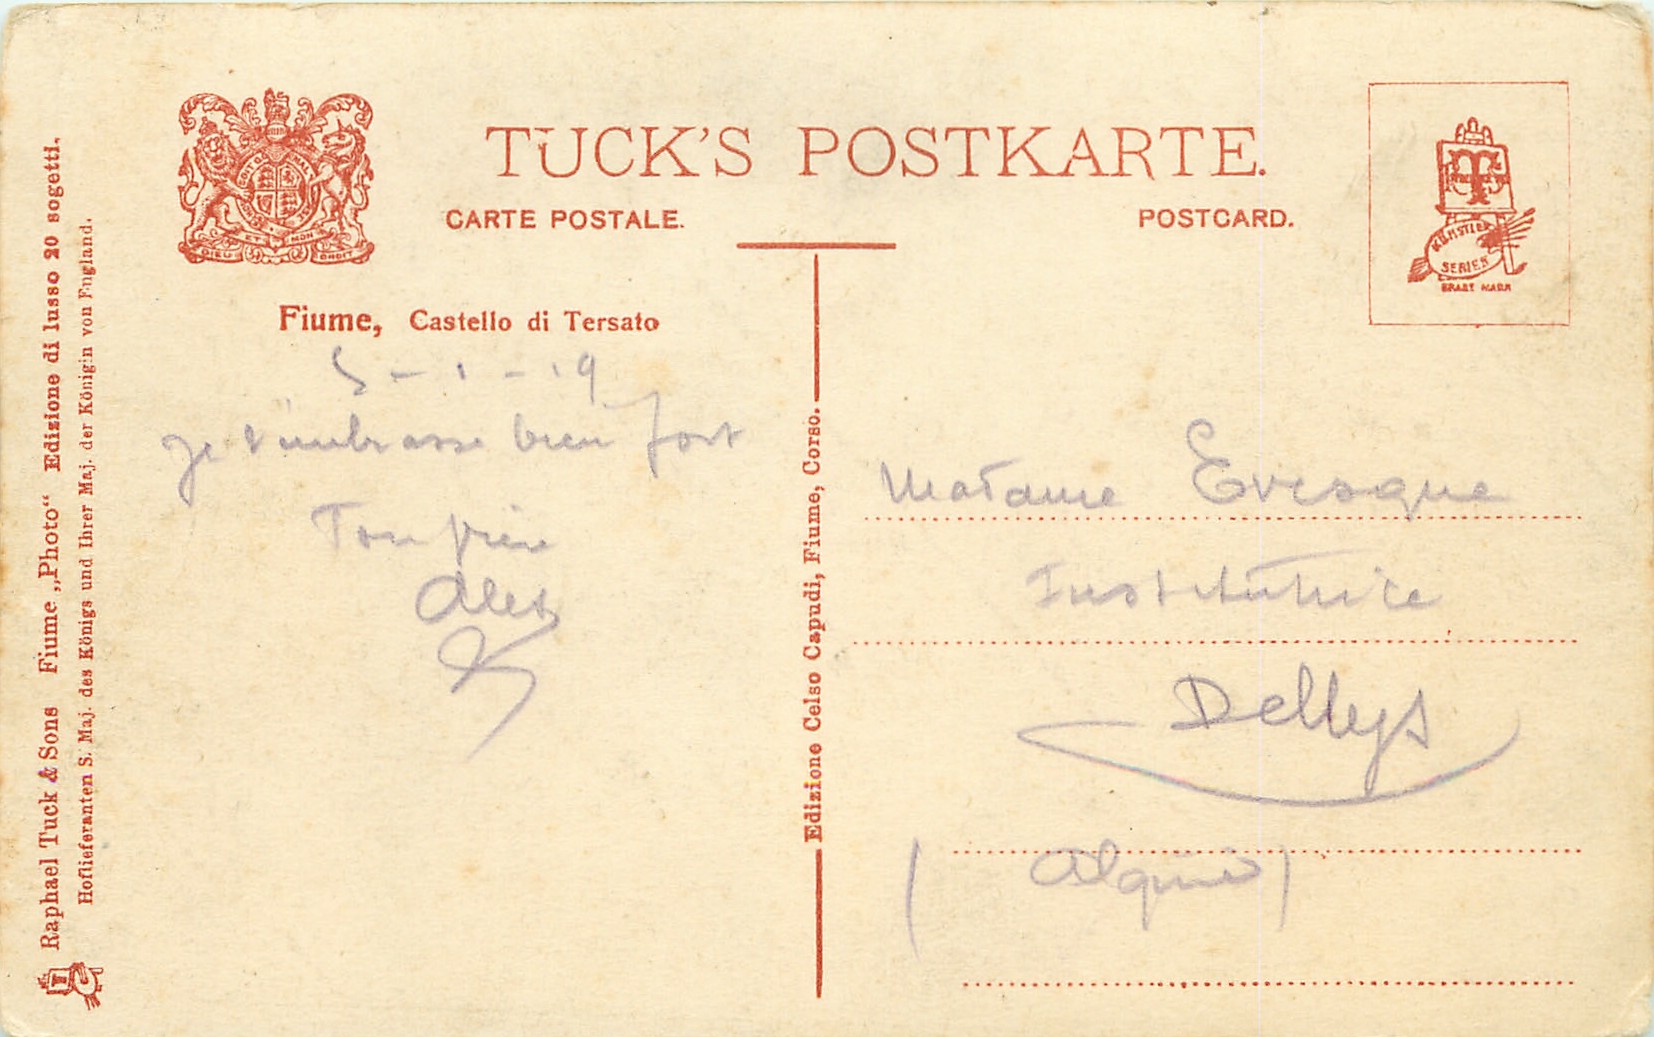 TUCK'S POSTKARTE.
CARTE POSTALE.
POSTCARD.
DIEU ET MON DROIT
KÜNSTLER
SERIES
Fiume, Castello di Tersato
5-1-19
Je t'embrasse bien fort
Ton frère
Alex
Madame Evesque
Institutrice
Dellys
(Algérie)
Edizione Celso Capudi, Fiume, Corso.
Raphael Tuck & Sons Fiume „Photo“ Edizione di lusso 20 sogetti.
Hoflieferanten S. Maj. des Königs und Ihrer Maj. der Königin von England.